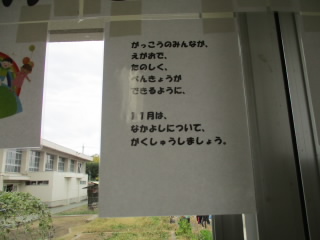 がっこうのみんなが、
えがおで、
たのしく、
べんきょうが
できるように、
１１月は、
なかよしについて、
がくしゅうしましょう。